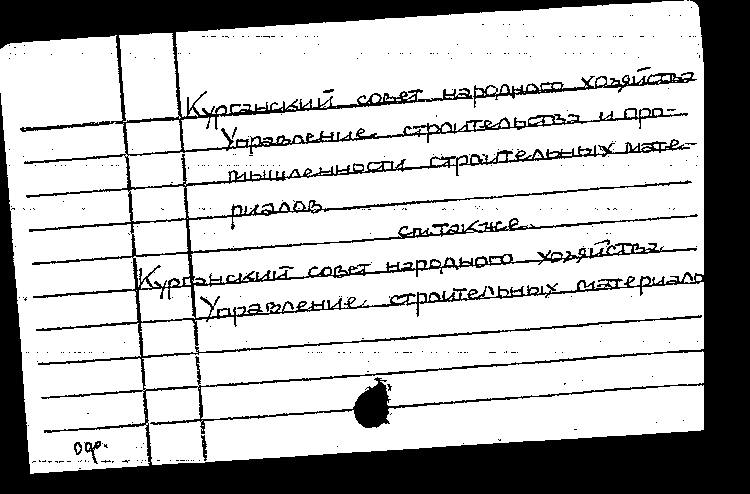 Курганский совет народного хозяйства
Управление строительства и про-
мышленности строительных мате-
риалов
см. также
Курганский совет народного хозяйства
Управление строительных материало